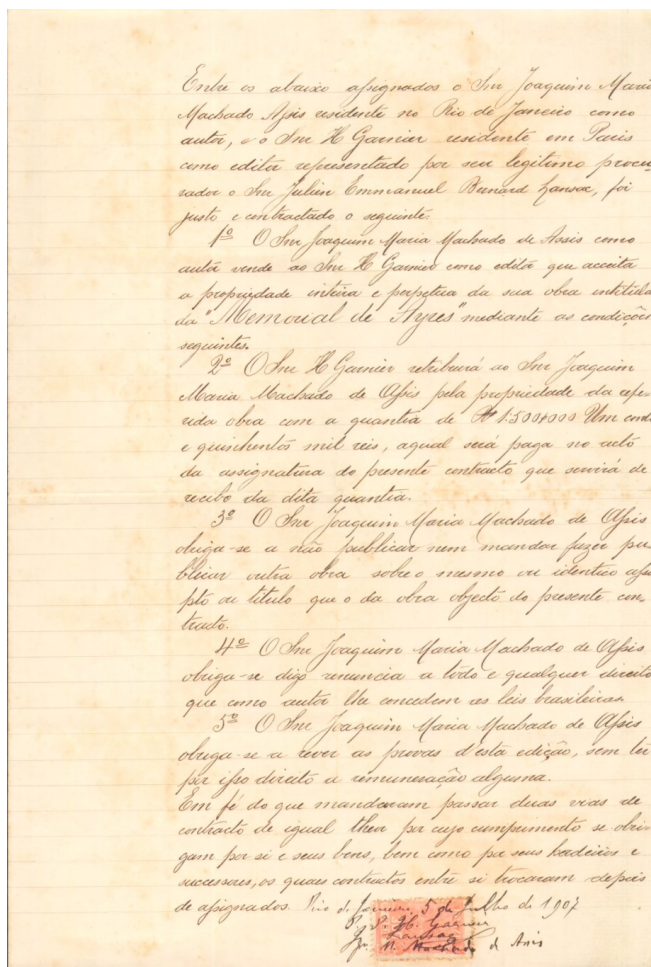 Entre os abaixo assignados o Snr Joaquim Maria
Machado Assis residente no Rio de Janeiro como
autor, e o Snr H Garnier residente em Paris
como editor representado por seu legitimo procu-
rador o Snr Julien Emmanuel Bernard Lansac, foi
justo e contractado o seguinte:
1º O Snr Joaquim Maria Machado de Assis como
autor vende ao Snr H Garnier como editor que acceita
a propriedade inteira e perpetua da sua obra intitula
da "Memorial de Ayres" mediante as condições
seguintes.
2º O Snr H Garnier retribuirá ao Snr Joaquim
Maria Machado de Assis pela propriedade da refe-
rida obra com a quantia de Rs 1:500$000 Um conto
e quinhentos mil reis, a qual será paga no acto
da assignatura do presente contracto que servirá de
recibo da dita quantia.
3º O Snr Joaquim Maria Machado de Assis
obriga-se a não publicar nem mandar fazer pu
blicar outra obra sobre o mesmo ou identico assu
pto ou titulo que o da obra objecto do presente con-
trato.
4º O Snr Joaquim Maria Machado de Assis
obriga-se digo renuncia a todo e qualquer direito
que como autor lhe concedem as leis brasileiras.
5º O Snr Joaquim Maria Machado de Assis
obriga-se a rever as provas d'esta edição, sem ter
por isso direito a remuneração alguma.
Em fé do que mandaram passar duas vias de
contracto de igual theor por cujo cumprimento se obri
gam por si e seus bens, bem como por seus herdeiros e
successores, os quaes contractos entre si trocaram depois
de assignados. Rio de Janeiro, 5 de Julho de 1907
P. P. H. Garnier
Lansac
M. Machado de Assis